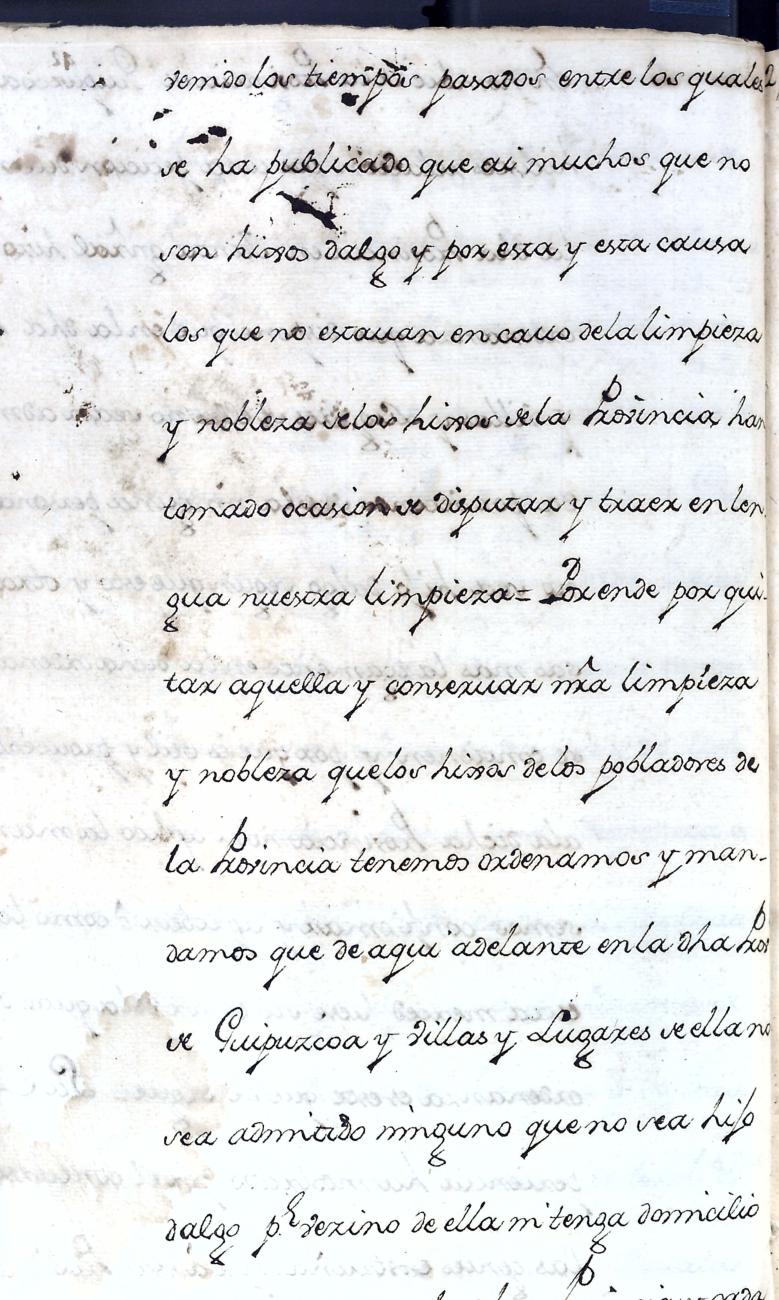 venido los tiempos pasados entre los quales
se ha publicado que ai muchos que no
son hixos dalgo y por esta y esta causa
los que no estauan en cauo dela limpieza
y nobleza delos hixos dela Provincia han
tomado ocasion de disputar y traer en len
gua nuestra limpieza = Porende por qui-
tar aquella y conseruar nrã limpieza
y nobleza quelos hixos delos pobladores de
la Provincia tenemos ordenamos y man-
damos que de aqui adelante enla dha Prov
de Guipuzcoa y villas y Lugares de ella no
sea admitido ninguno que no sea hijo
dalgo pr vezino de ella ni tenga domicilio